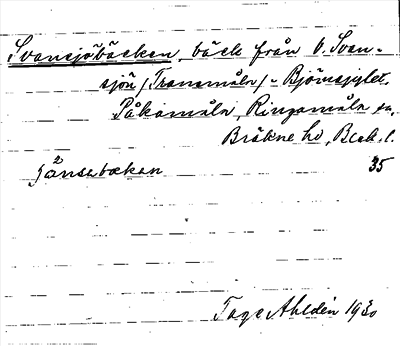 Svansjöbäcken, bäck från V. Svan-
sjön (Tranemåla) - Björnasjglet.
Påkamåla, Ringamåla sn,
Bräkne hd, Blek. l.
jánsabækan 35
Tage Ahldén 1930